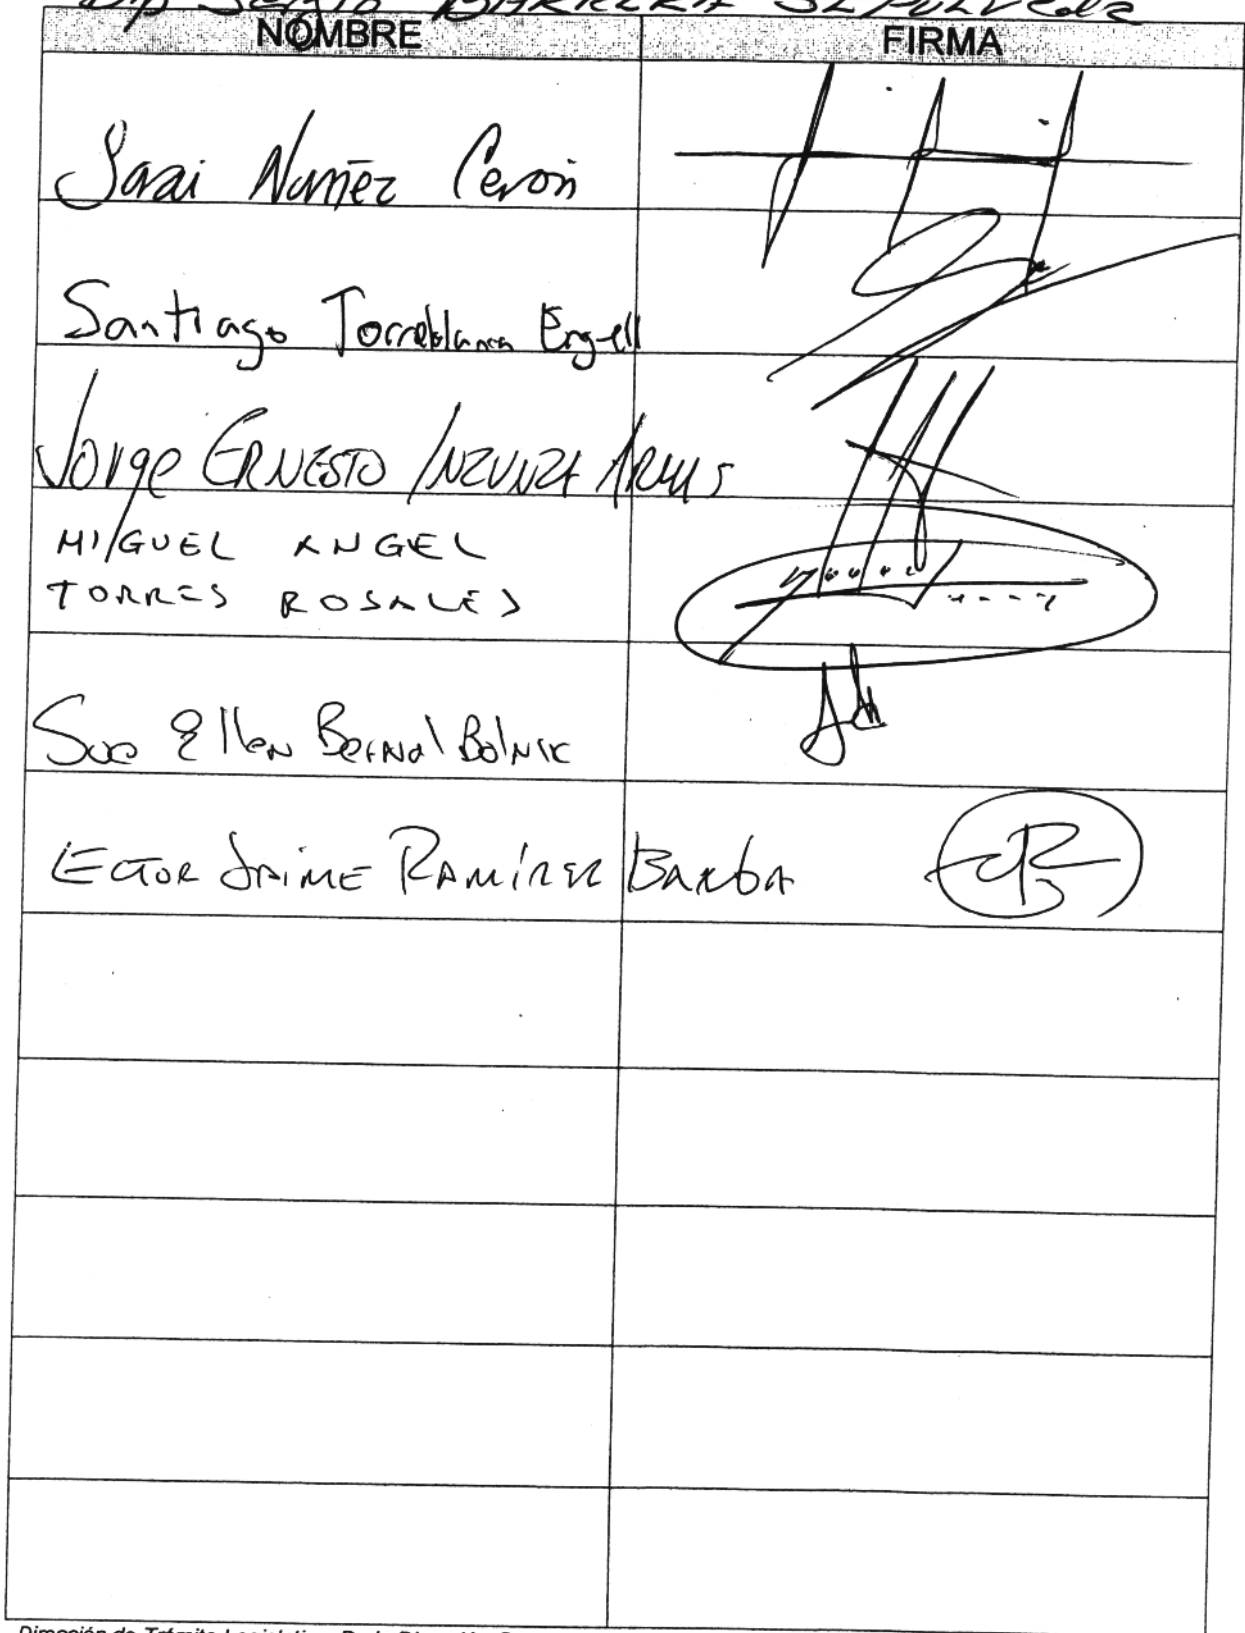 Dip Sergio BARRERA SEPÚLVEDA
NOMBRE FIRMA
Sarai Nuñez Ceron
Santiago Torreblanca Engell
Jorge ERNESTO INZUNZA ARMAS
MIGUEL ANGEL
TORRES ROSALES
Sue Ellen Bernal Bolnik
ECTOR JAIME RAMÍREZ BARBA
Dirección de Trámite Legislativo